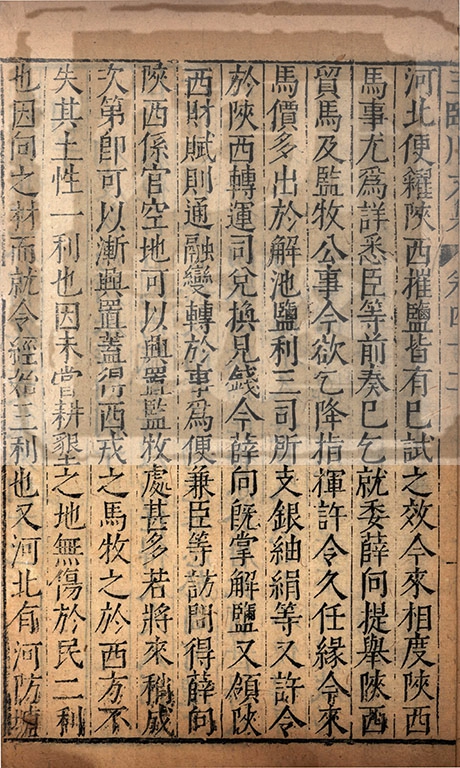 王臨川文集 卷四十二
河北便糴陝西搉鹽皆有已試之效今來相度陝西
馬事尤爲詳悉臣等前奏已乞就委薛向提舉陝西
貿馬及監牧公事今欲乞降指揮許令久任緣今來
馬價多出於解池鹽利三司所支銀紬絹等又許令
於陝西轉運司兌換見錢今薛向既掌解鹽又領陝
西財賦則通融變轉於事爲便兼臣等訪問得薛向
陝西係官空地可以興置監牧處甚多若將來稍成
次第卽可以漸興置蓋得西戎之馬牧之於西方不
失其土性一利也因未嘗耕墾之地無傷於民二利
也因向之材而就令經始三利也又河北有河防塘